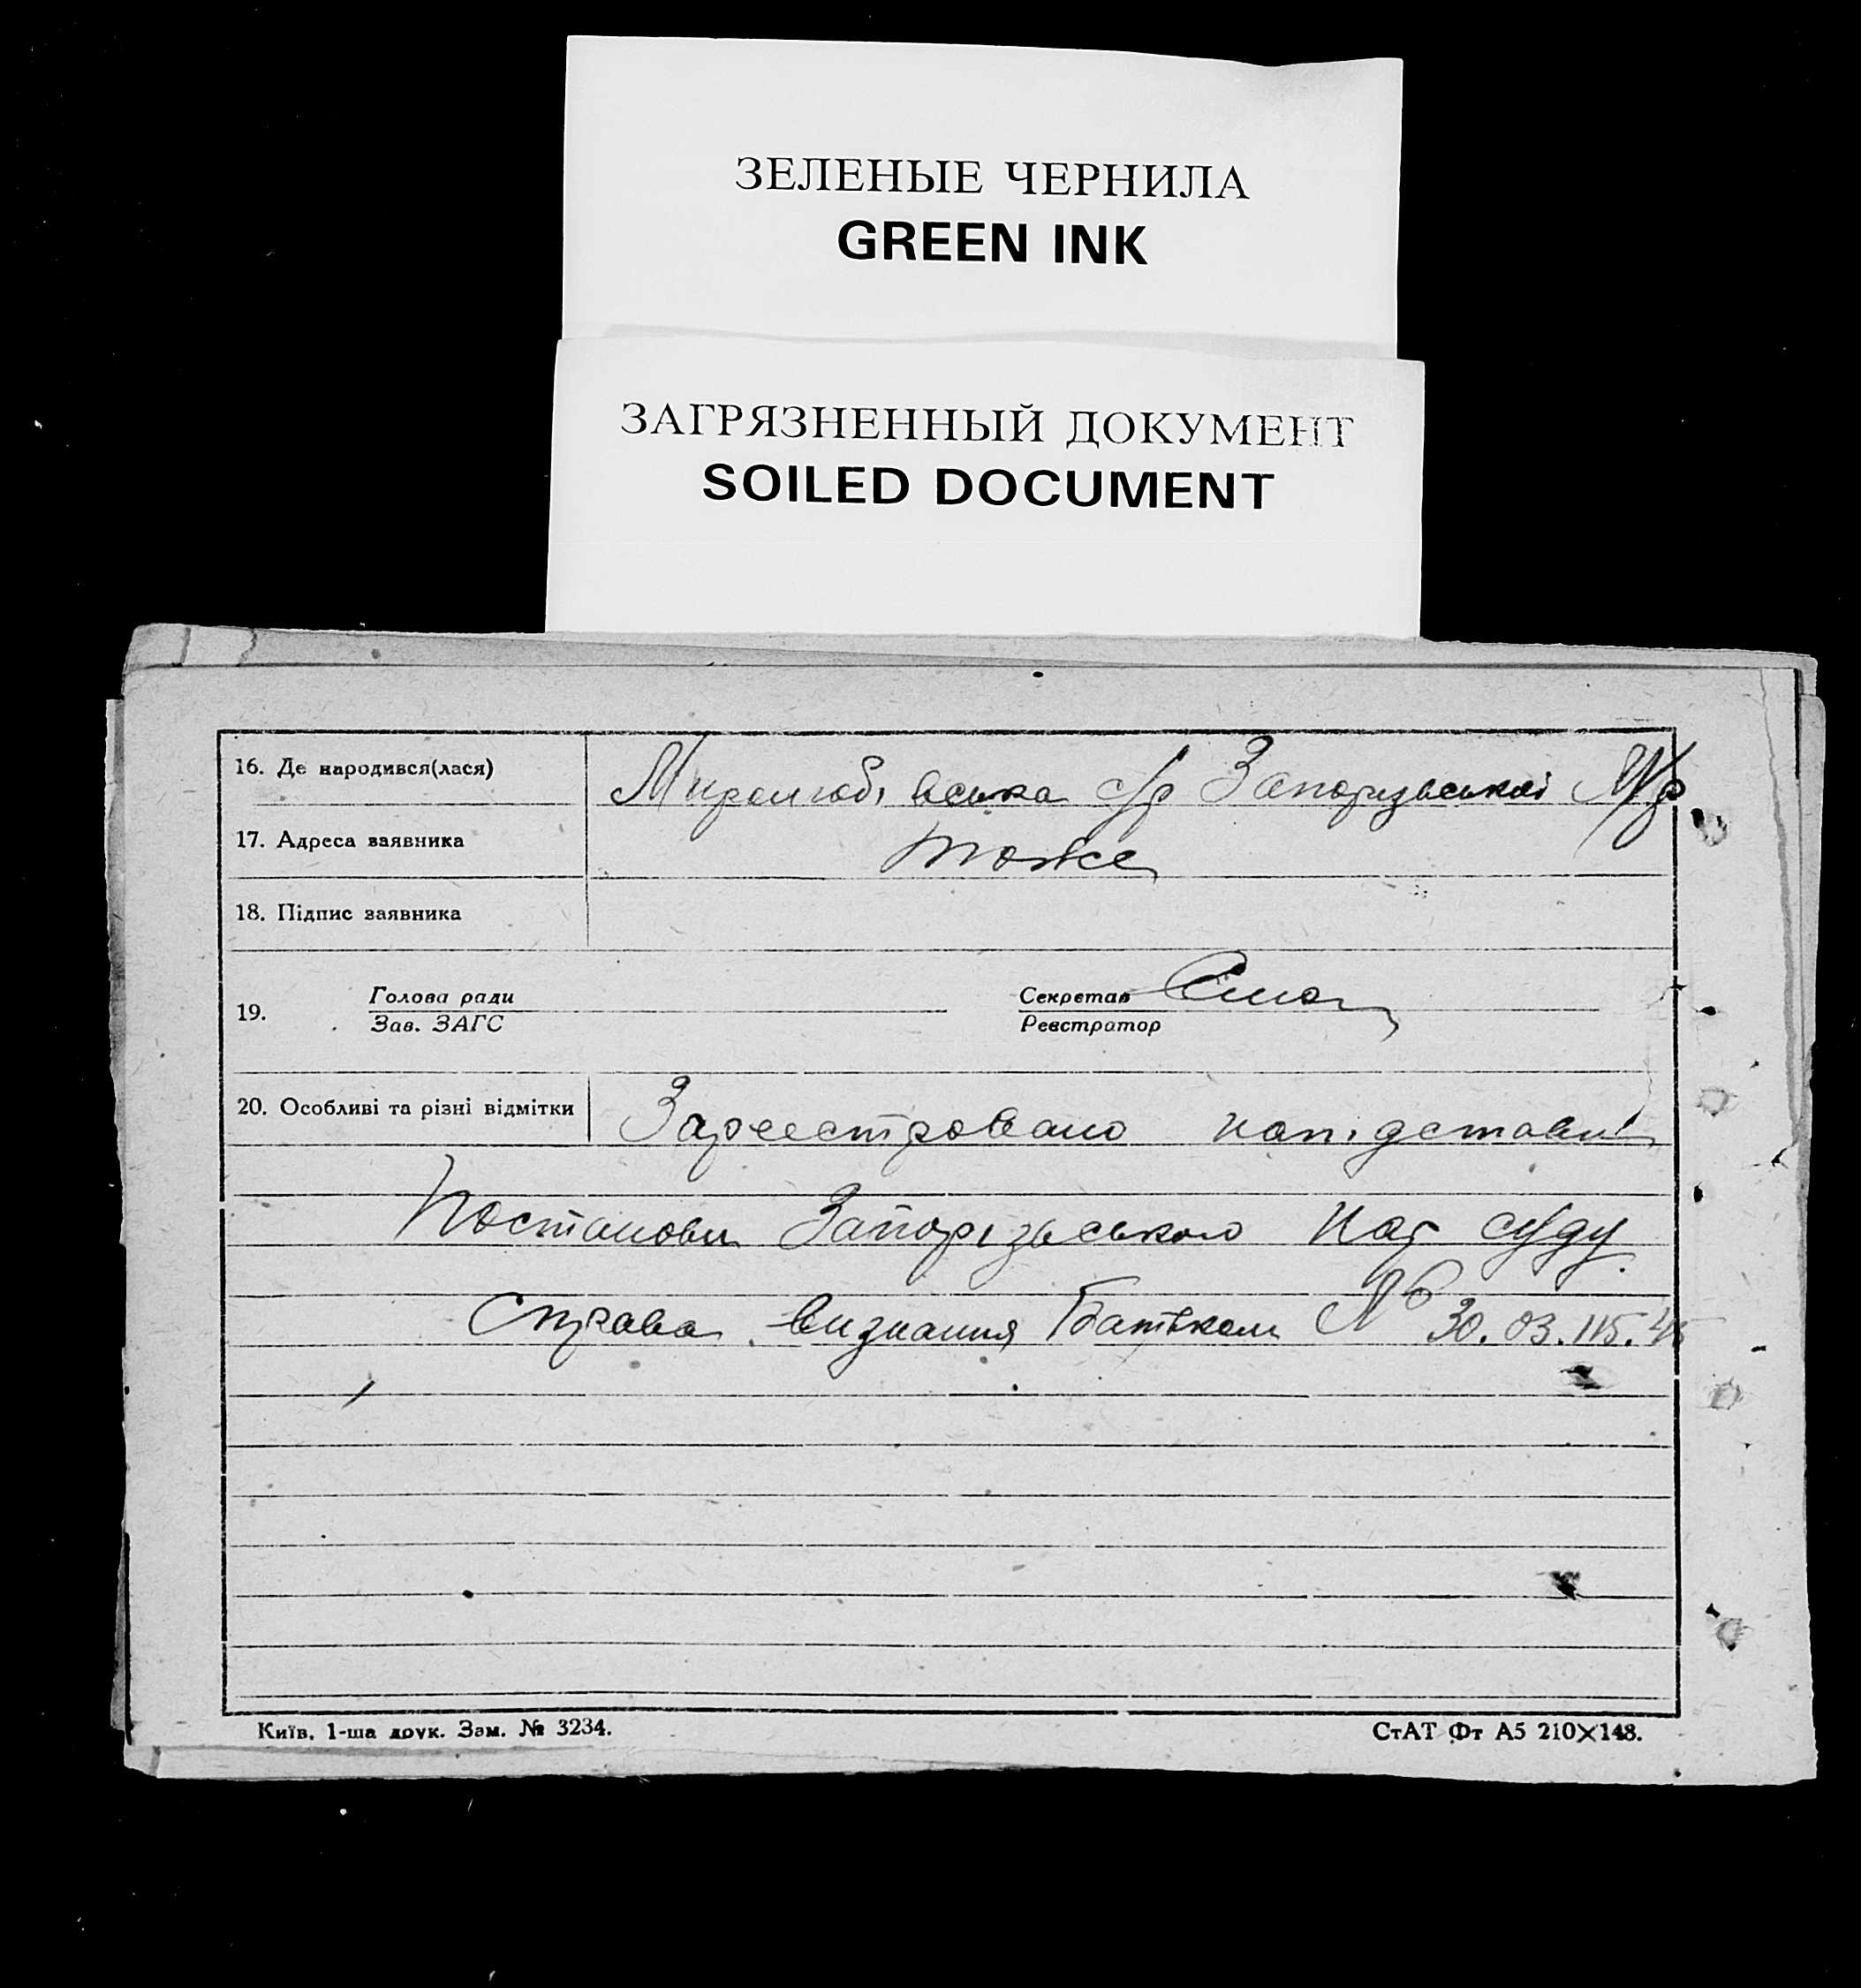 ЗЕЛЕНЫЕ ЧЕРНИЛА
GREEN INK
ЗАГРЯЗНЕННЫЙ ДОКУМЕНТ
SOILED DOCUMENT
16. Де народився(лася) Миролюбівська с/р Запорізької М/р
17. Адреса заявника тоже
18. Підпис заявника
19. Голова ради Секретар
Зав. ЗАГС Реєстратор
20. Особливі та різні відмітки Зареєстровано напідставі
Постанови Запорізьського Нар суду.
Справа визнання Батьком № 30.03.115.45
Київ, 1-ша друк. Зам. № 3234. СтАТ Фт А5 210×148.